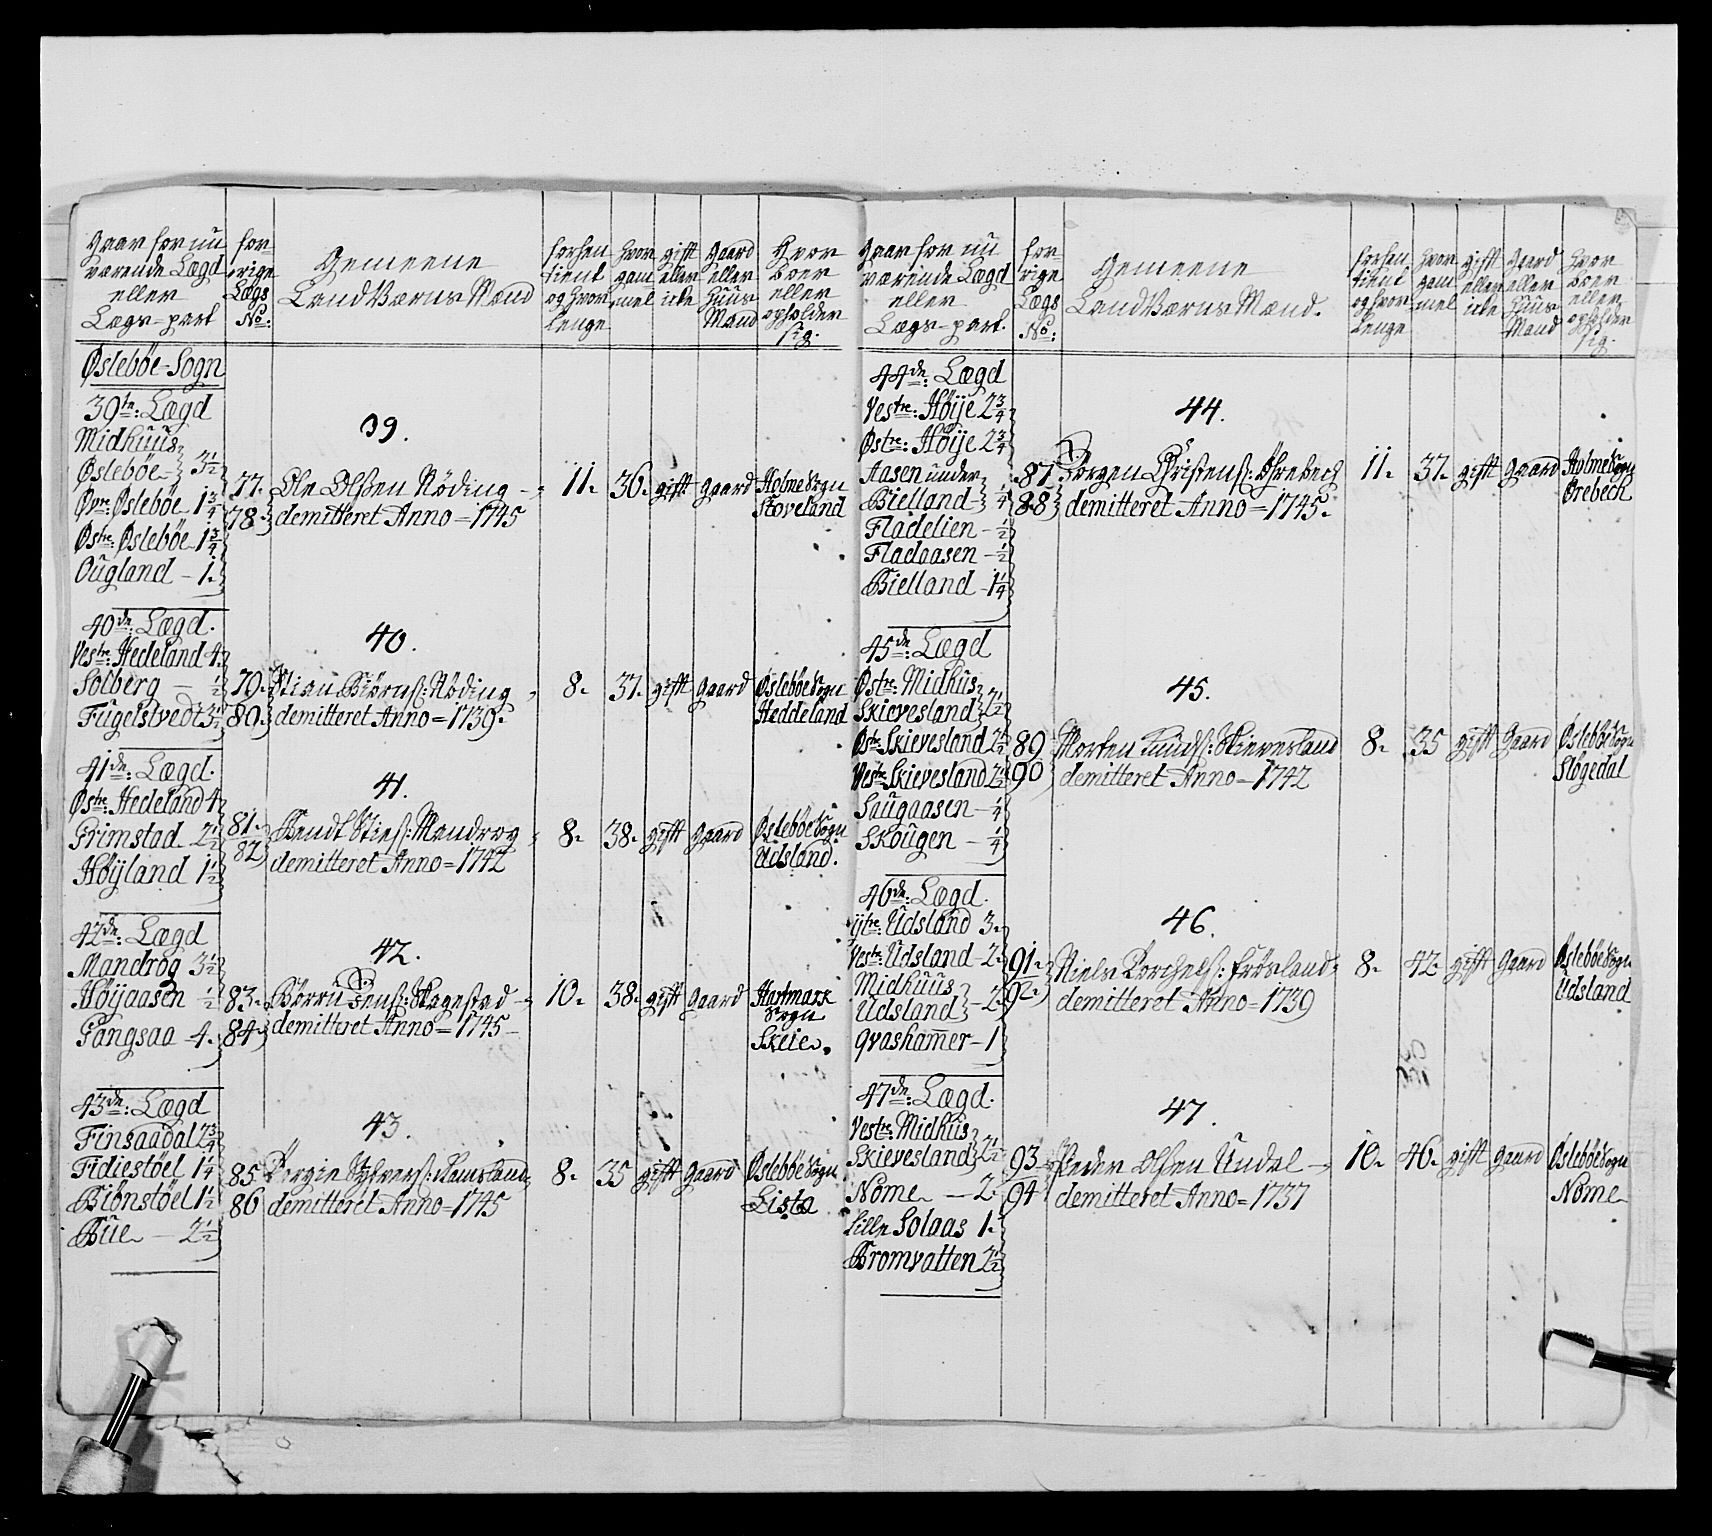 Gaar for nu
værende Lægd
eller
Lægs-part
for-
rige
Lægs
No:
Gemeene
LandVærns Mænd
forhen
tient
og hvor
lenge
hvor
gam
mel
gifft
eller
icke
Gaard
eller
Huus
Mand
Hvor
boer
eller
opholder
sig.
Øslebøe-Sogn
39te: Lægd
Midhuus
Øslebøe 3½
Øvre: Øslebøe 1¾
Østre: Øslebøe 1¾
Ougland - 1.
77.
78
39.
Ole Olssen Nøding
demitteret Anno = 1745
11.
36.
gifft
gaard
Holme Sogn
Støveland
40de: Lægd.
Vestre: Hedeland 4.
Solberg — ½
Fugelstvedt 3½
79.
80
40.
Stian Biørns: Nøding
demitteret Anno = 1739.
8.
37.
gifft
gaard
Øslebøe Sogn
Heddeland
41de: Lægd.
Østre: Hedeland 4
Grimstad 2½
Høyland 1½
81.
82
41.
Bendt Sties: Mandrog
demitteret Anno = 1742
8.
38.
gifft
gaard
Øslebøe Sogn
Udsland.
42de: Lægd
Mandrog 3½
Høijaasen ½
Gangsaa 4.
83.
84.
42.
Børru Jens: Skagestad
demitteret Anno = 1745
10.
38.
gifft
gaard
Hartmark
Sogn
Skeie.
43de: Lægd
Finsaadal 2¾
Fidiestøel 1¼
Biønstøel 1½
Bue — 2½
85
86
43.
Torgie Sylvers:
demitteret Anno = 1745
8.
35
gifft
gaard
Øslebøe Sogn
Lista
Gaar for nu
værende Lægd
eller
Lægs-part.
for
rige
Lægs
No:
Gemeene
LandVærns Mænd.
forhen
tient
og hvor
lenge
hvor
gam
mel
gifft
eller
icke
Gaard
eller
Huus
Mand
hvor
boer
eller
opholder
sig.
44de: Lægd
Vestre: Høije 2¾
Østre: Høije 2¾
Aasen under
Bielland ¼
Fladelien - ½
Fladaasen - ½
Bielland - 1¼
87
88
44.
Jørgen Christens: Ørebech
demitteret Anno = 1745.
11.
37.
gifft
gaard
Holme Sogn
Ørebech
45de: Lægd
Østre: Midhus
Skievesland 2½
Østre: Skievesland 2½
Vestre: Skievesland 2½
Saugaasen - ¼
Skougen - ¼
89
90
45.
Morten Knuds: Skievesland
demitteret Anno = 1742
8.
35
gifft
gaard
Øslebøe Sogn
Sløgedal
46de: Lægd.
ijtre: Udsland 3.
Vestre: Udsland 2.
Midhuus
Udsland - 2
Qvashamer - 1
91.
92.
46.
Niels Torchels: Frøsland
demitteret Anno = 1739
8.
42.
gifft
gaard
Øslebøe Sogn
Udsland
47de: Lægd.
Vestre: Midhus
Skievesland 2½
Nome — 2
Lille Solaas 1.
Bromvatten 2½
93.
94
47.
Peder Olsen Undal
demitteret Anno = 1737
10.
46.
gifft
gaard
Øslebøe Sogn
Nome